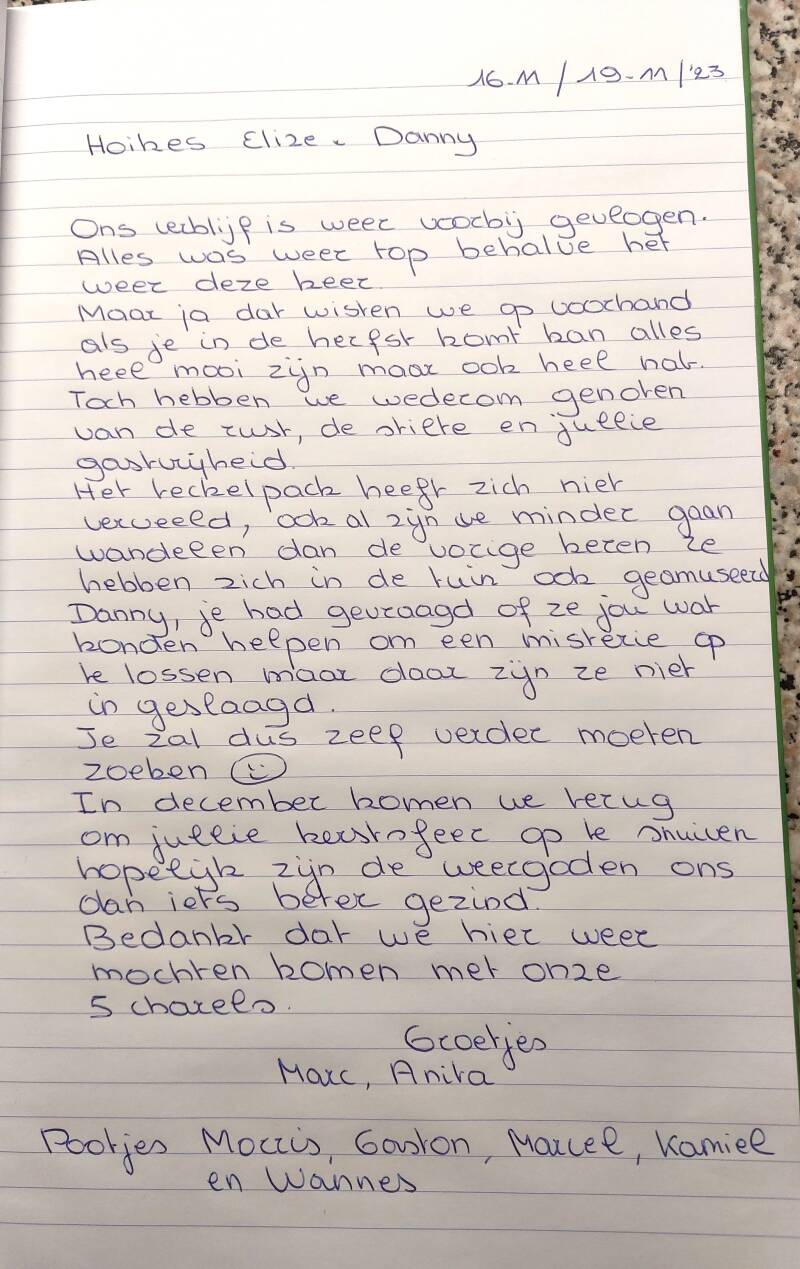 16-11 / 19-11 / '23
Hoikes Elize & Danny
Ons verblijf is weer voorbij gevlogen.
Alles was weer top behalve het
weer deze keer.
Maar ja dat wisten we op voorhand
als je in de herfst komt kan alles
heel mooi zijn maar ook heel nat.
Toch hebben we wederom genoten
van de rust, de stilte en jullie
gastvrijheid.
Het teckelpack heeft zich niet
verveeld, ook al zijn we minder gaan
wandelen dan de vorige keren ze
hebben zich in de tuin ook geamuseerd
Danny, je had gevraagd of ze jou wat
konden helpen om een misterie op
te lossen maar daar zijn ze niet
in geslaagd.
Je zal dus zelf verder moeten
zoeken ☺
In december komen we terug
om jullie kerstsfeer op te snuiven
hopelijk zijn de weergoden ons
dan iets beter gezind.
Bedankt dat we hier weer
mochten komen met onze
5 charels.
Groetjes
Marc, Anita
Pootjes Morris, Gaston, Marcel, Kamiel
en Wannes